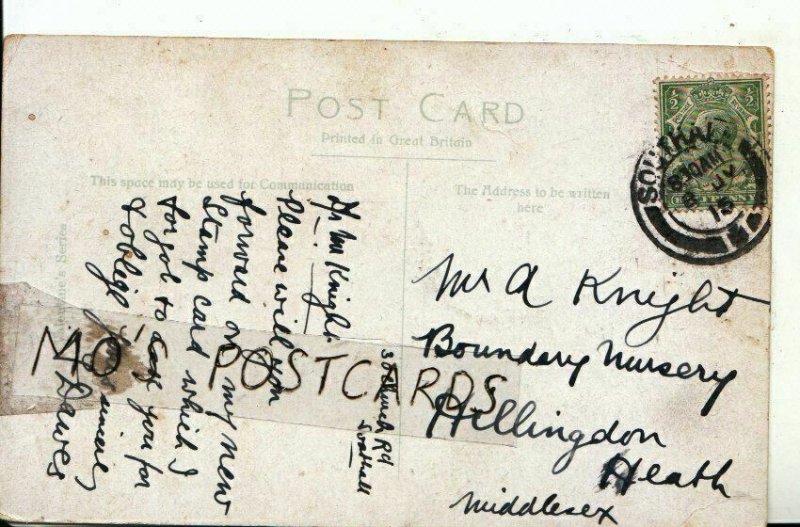 POST CARD
Printed in Great Britain
This space may be used for Communication
The Address to be written
here
SOUTHALL
8 30 AM
8 JY
15
Mr M Knight.
Please will you
forward on my new
Stamp card which I
forgot to ask you for
& oblige
Dawes
38 Church Rd
Southall
Mr A Knight
Boundary Nursery
Hillingdon
Heath
Middlesex
MO'C POSTCARDS